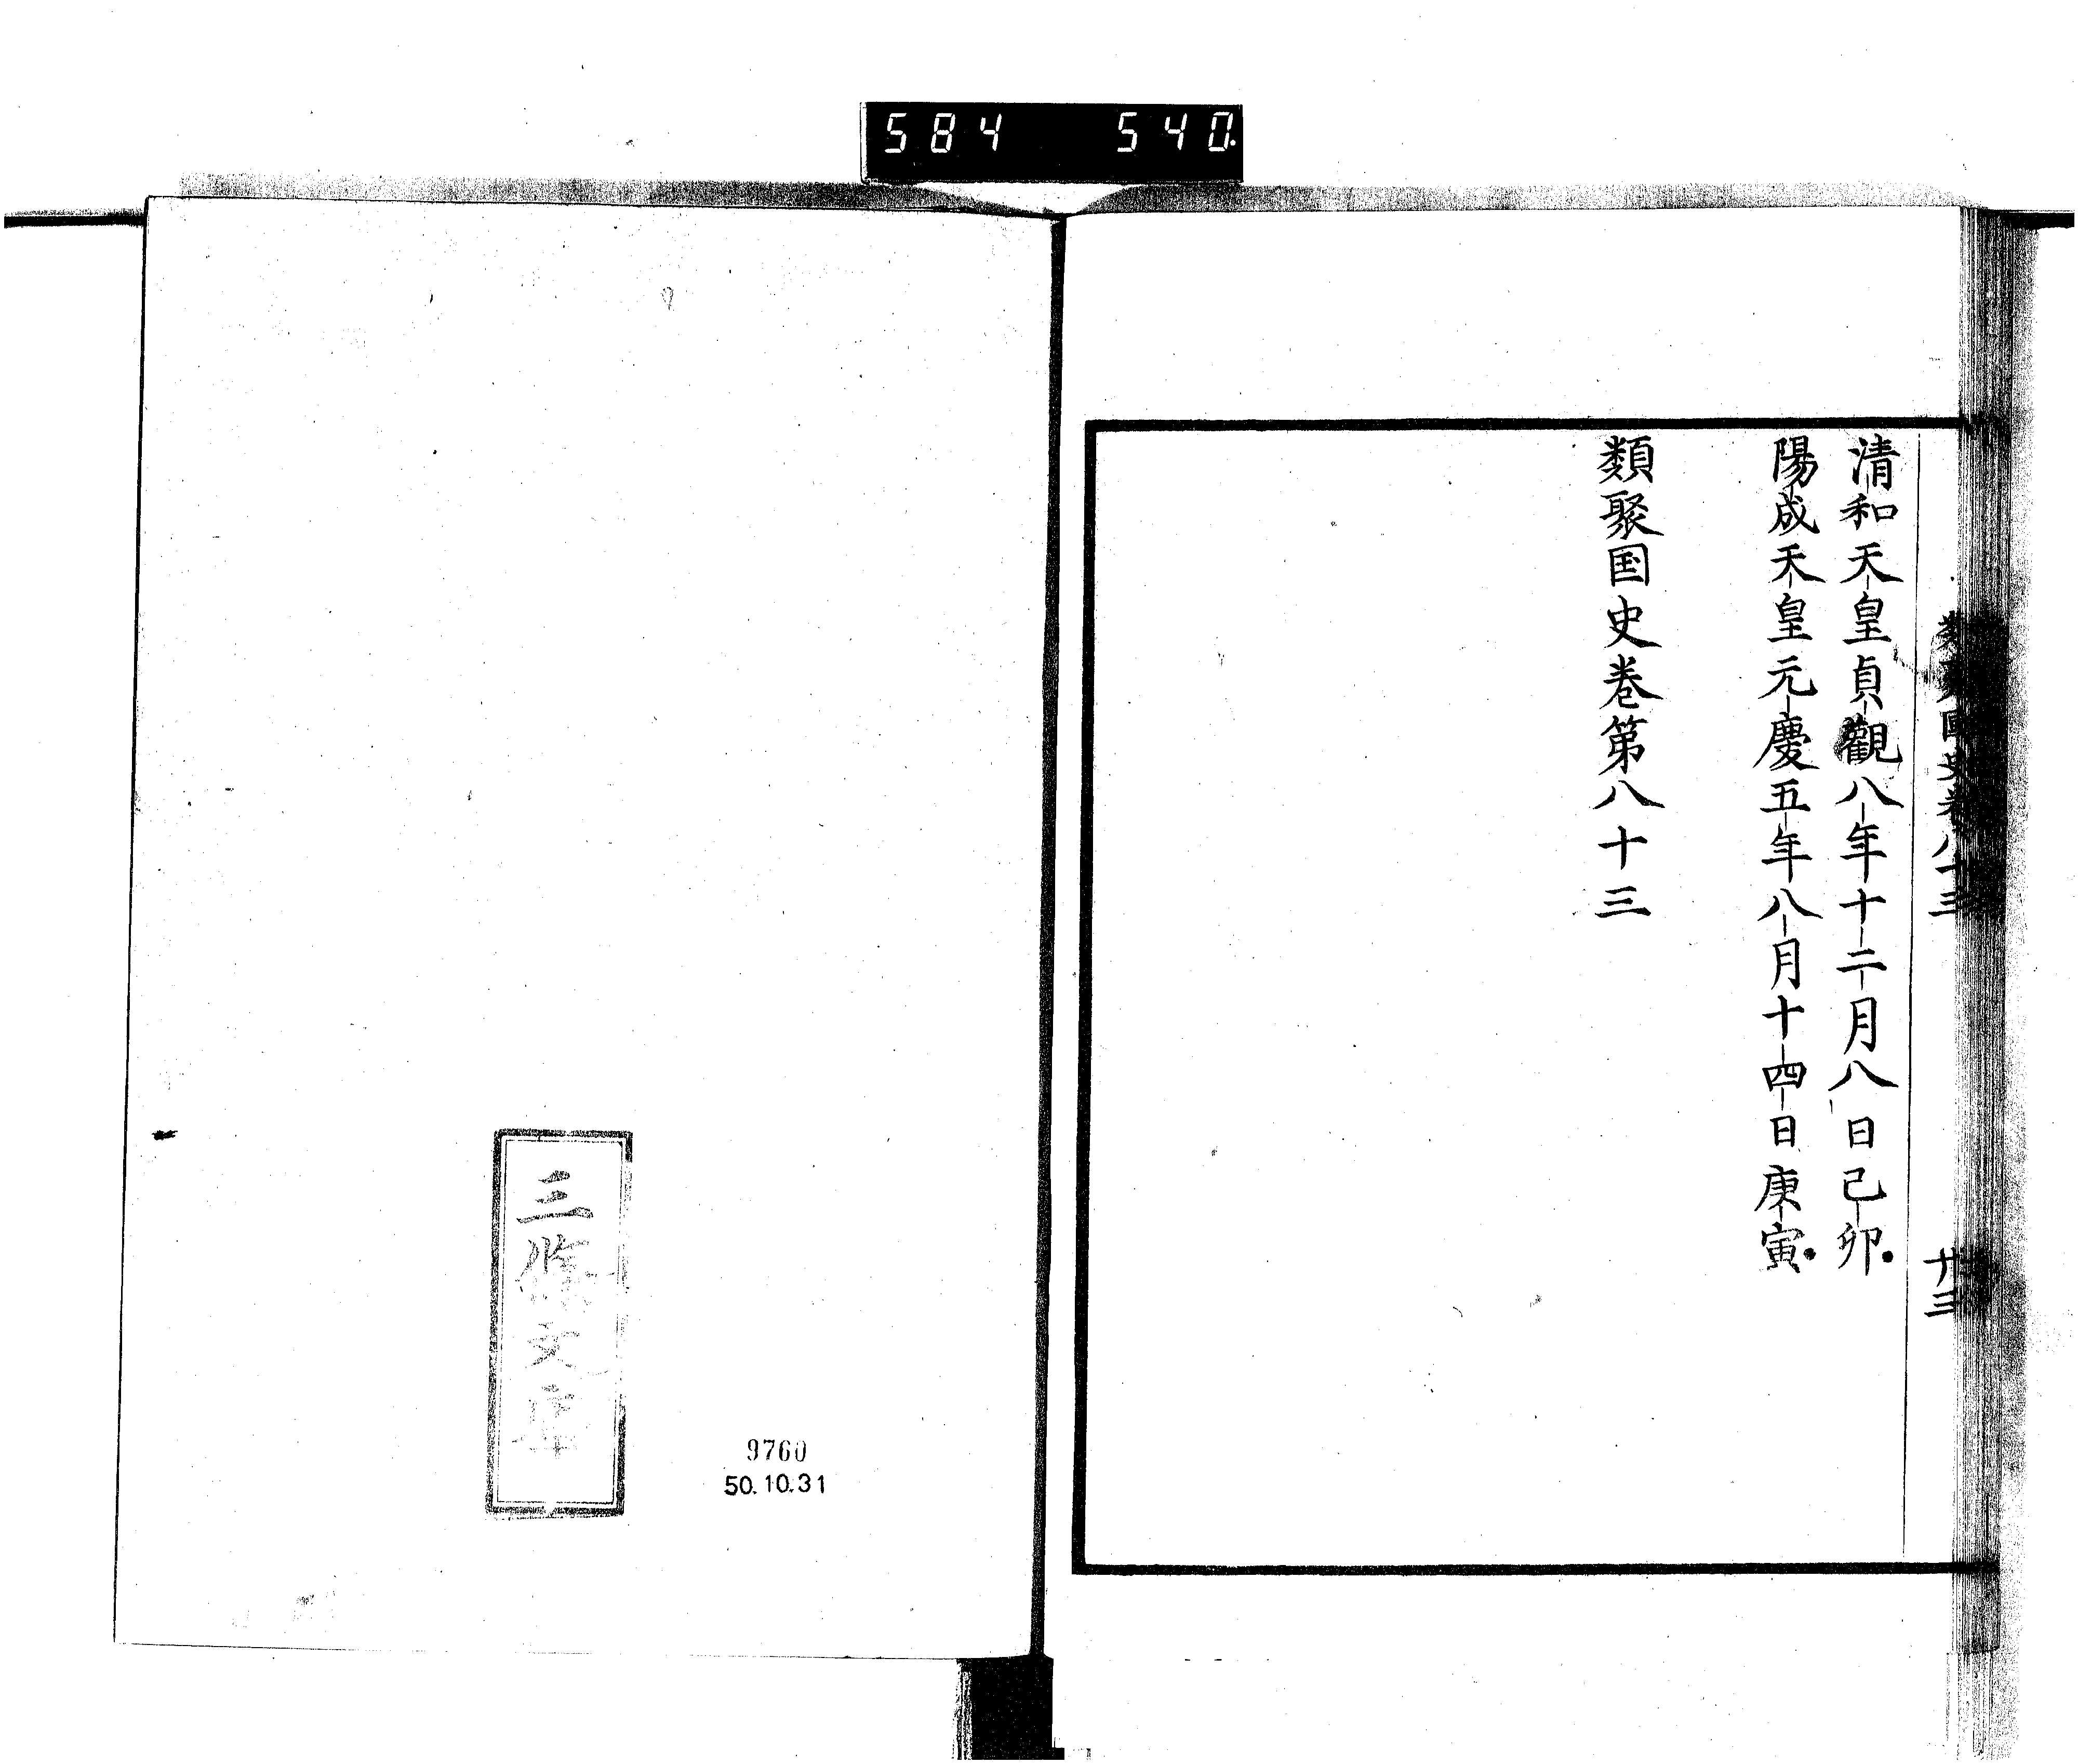 584 540.
類聚國史卷八十三
廿三
清和天皇貞觀八年十二月八日己卯
陽成天皇元慶五年八月十四日庚寅
類聚国史巻第八十三
三條文庫
9760
50.10.31